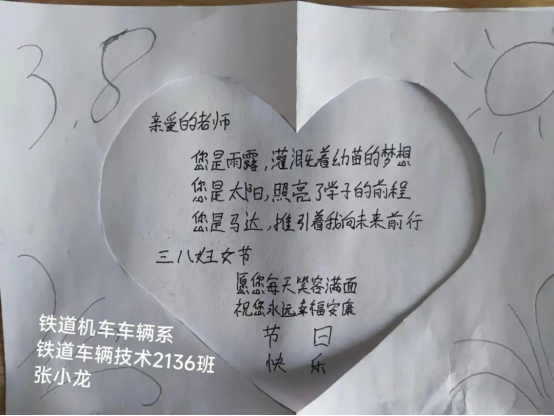 3.8
亲爱的老师
您是雨露,灌溉着幼苗的梦想
您是太阳,照亮了学子的前程
您是马达,推引着我向未来前行
三八妇女节
愿您每天笑容满面
祝您永远幸福安康
节日
快乐
铁道机车车辆系
铁道车辆技术2136班
张小龙